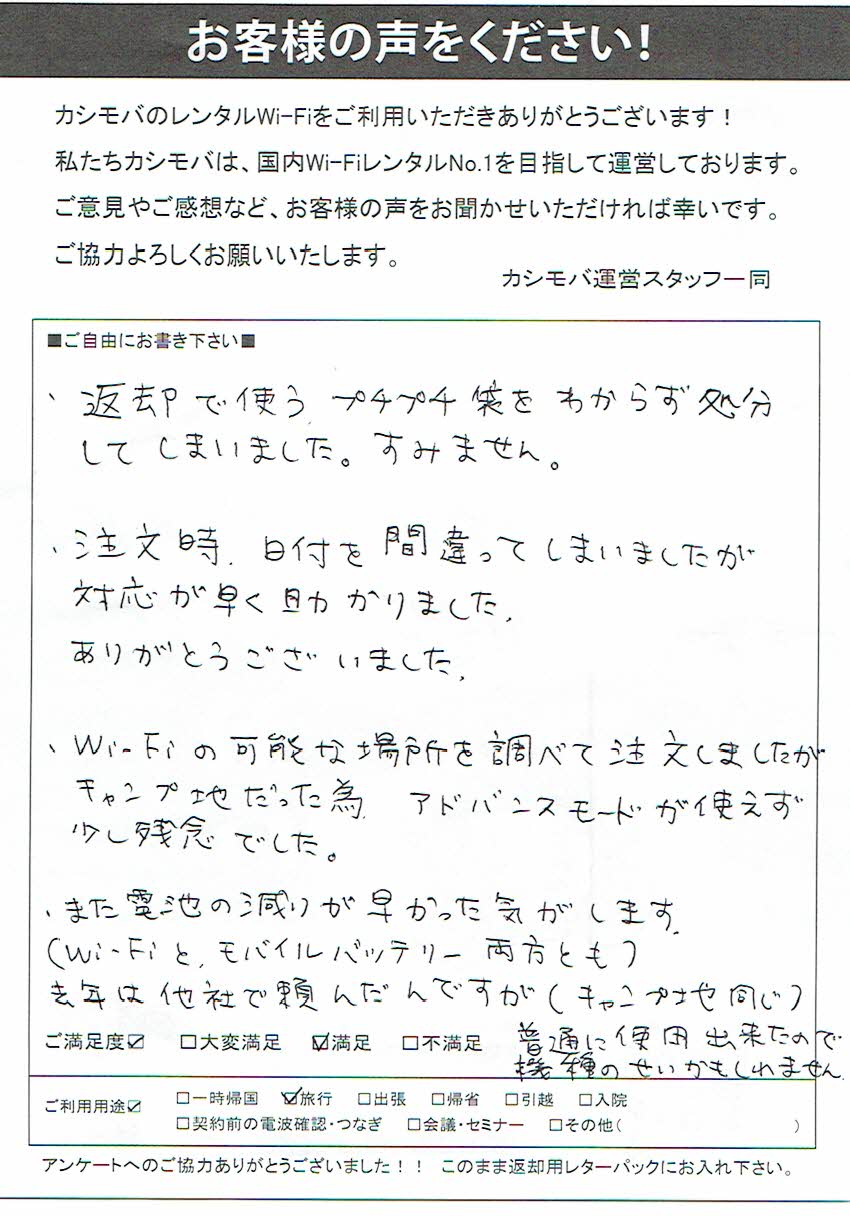 お客様の声をください!
カシモバのレンタルWi-Fiをご利用いただきありがとうございます!
私たちカシモバは、国内Wi-FiレンタルNo.1を目指して運営しております。
ご意見やご感想など、お客様の声をお聞かせいただければ幸いです。
ご協力よろしくお願いいたします。
カシモバ運営スタッフ一同
■ご自由にお書き下さい■
、返却で使う プチプチ袋を わからず処分
してしまいました。すみません。
、注文時、日付を間違ってしまいましたが
対応が早く助かりました。
ありがとうございました。
、Wi-Fiの可能な場所を調べて注文しましたが
キャンプ地だった為、アドバンスモードが使えず
少し残念でした。
、また電池の減りが早かった気がします。
(Wi-Fiと、モバイルバッテリー両方とも)
去年は他社で頼んだんですが(キャンプ地同じ)
普通に使用出来たので
機種のせいかもしれません。
ご満足度☑ □大変満足 ☑満足 □不満足
ご利用用途☑ □一時帰国 ☑旅行 □出張 □帰省 □引越 □入院
□契約前の電波確認・つなぎ □会議・セミナー □その他( )
アンケートへのご協力ありがとうございました!! このまま返却用レターパックにお入れ下さい。